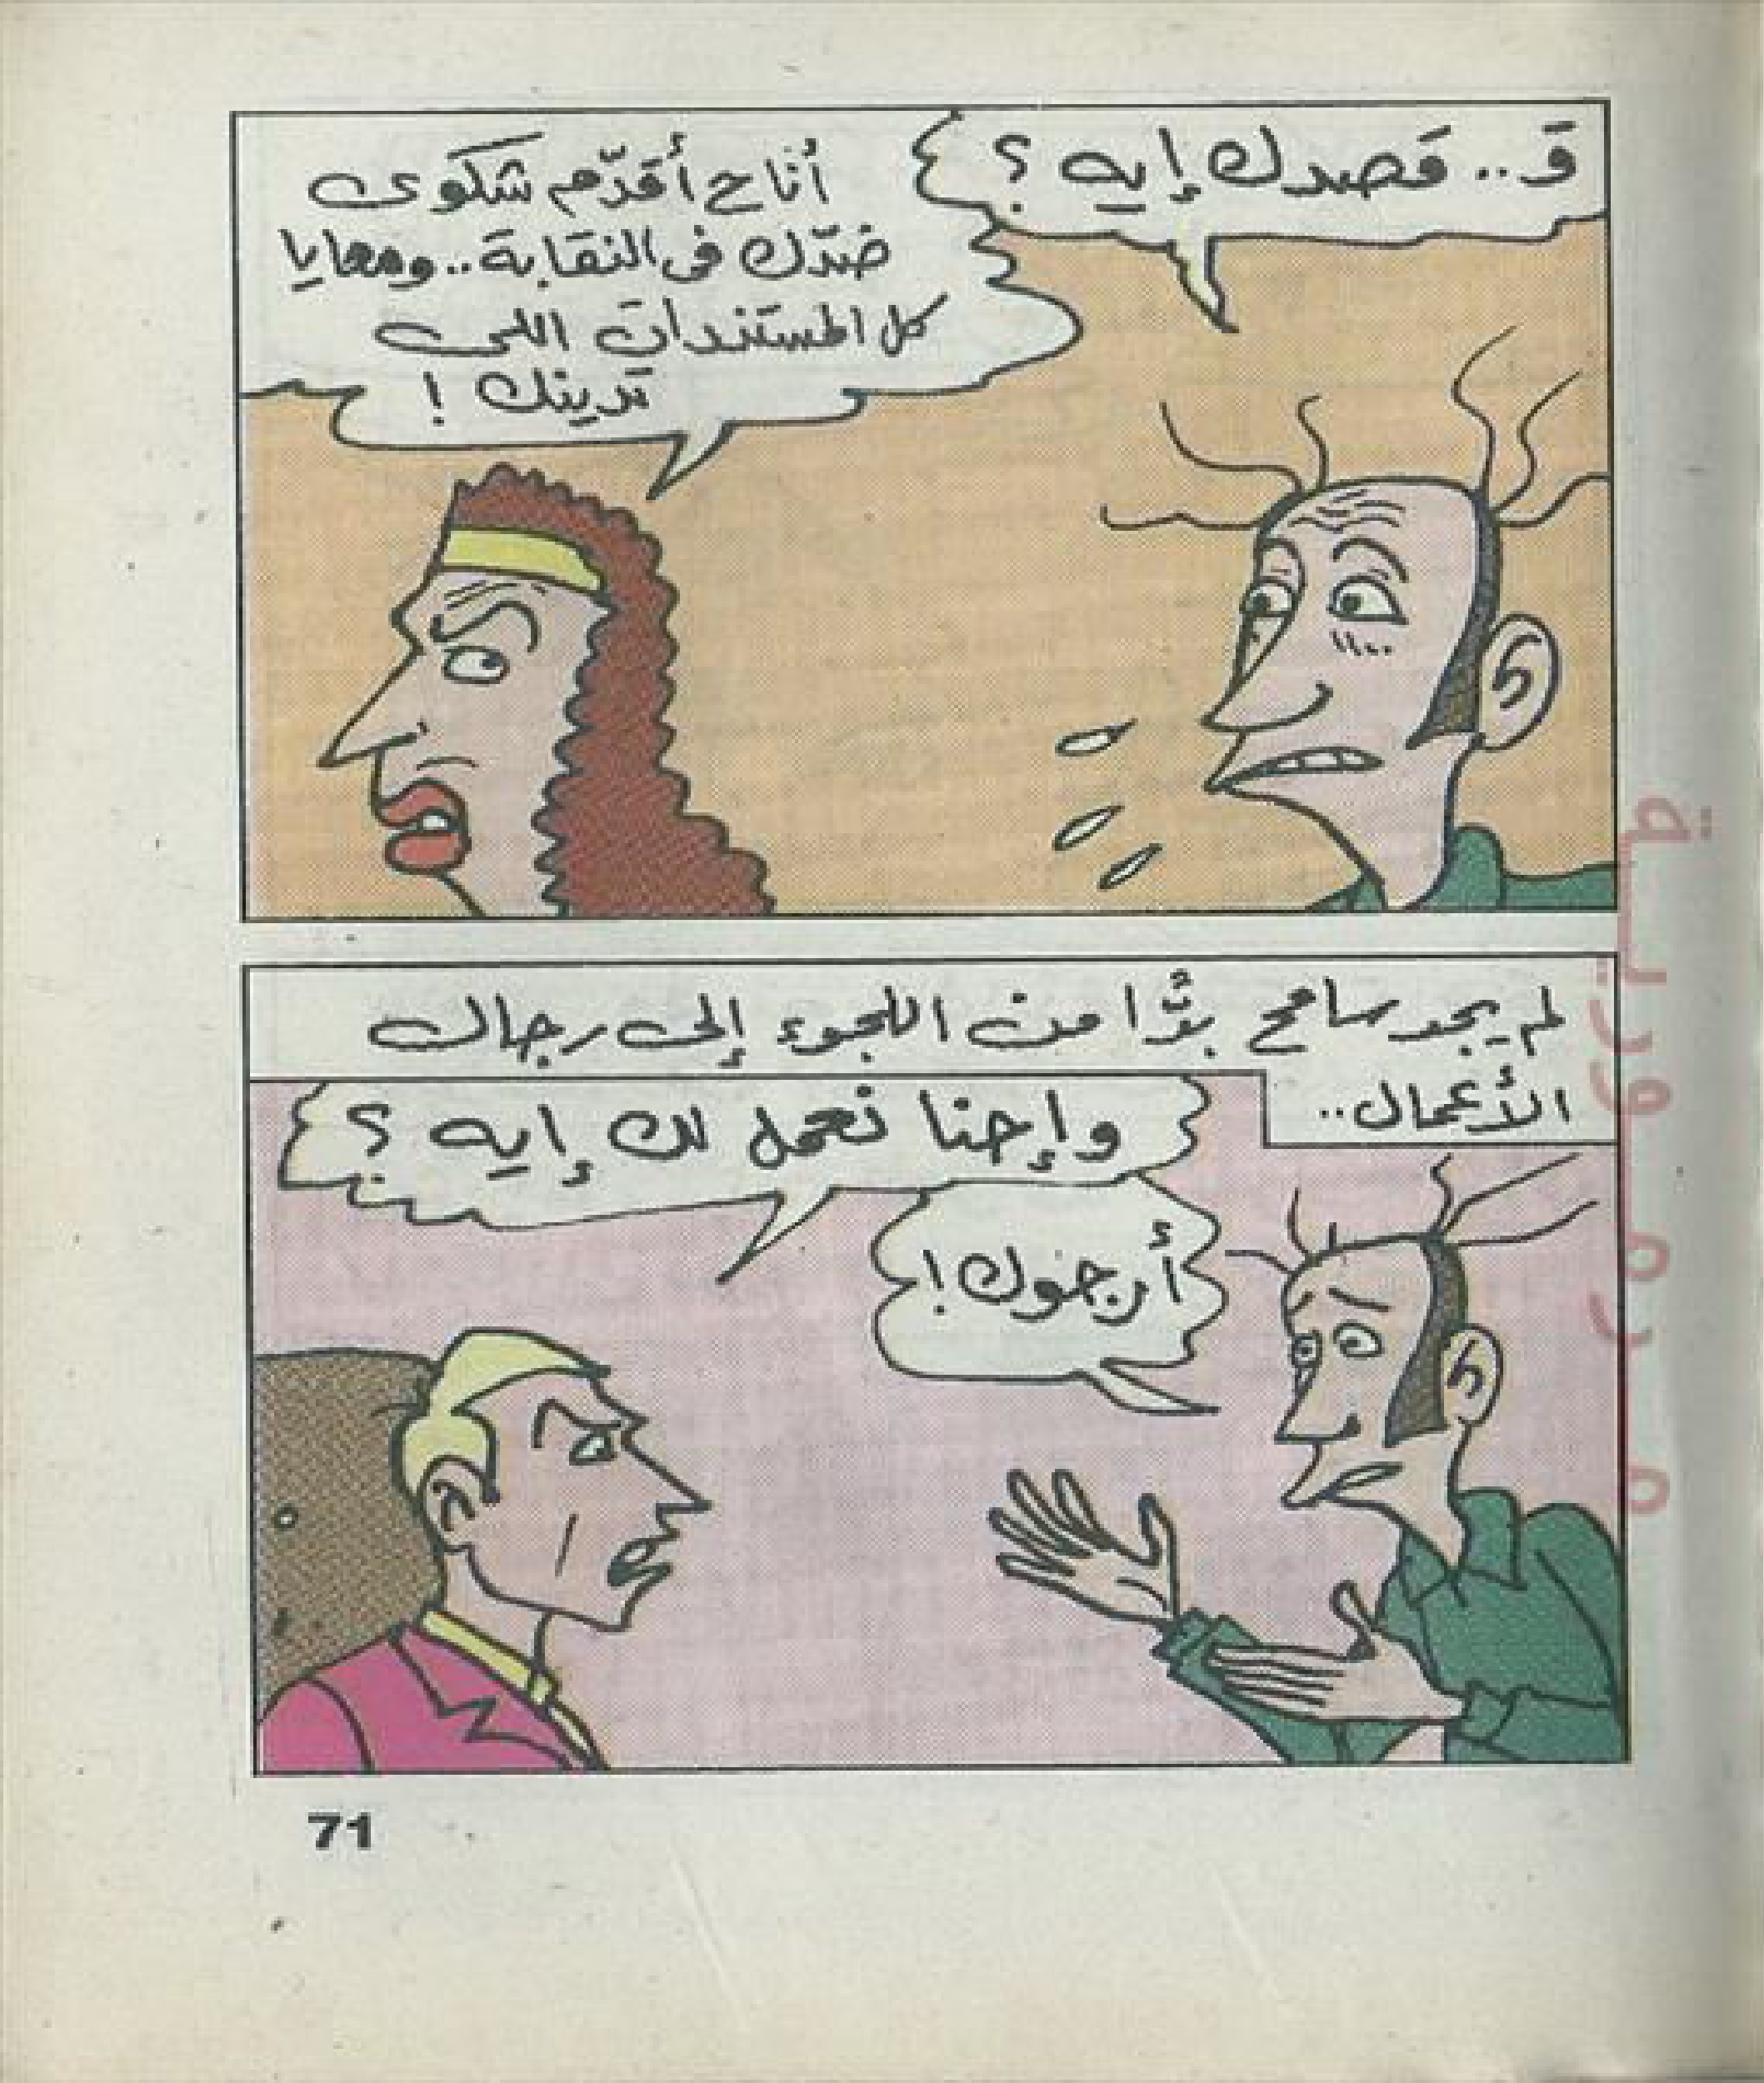 قَ.. قصدك إيه ؟
أنا ح أقدّم شكوى
ضدّك فى النقابة.. ومعايا
كل المستندات اللى
تدينك !
لم يجد سامح بدًّا من اللجوء إلى رجال
الأعمال..
وإحنا نعمل لك إيه ؟
أرجوك !
71